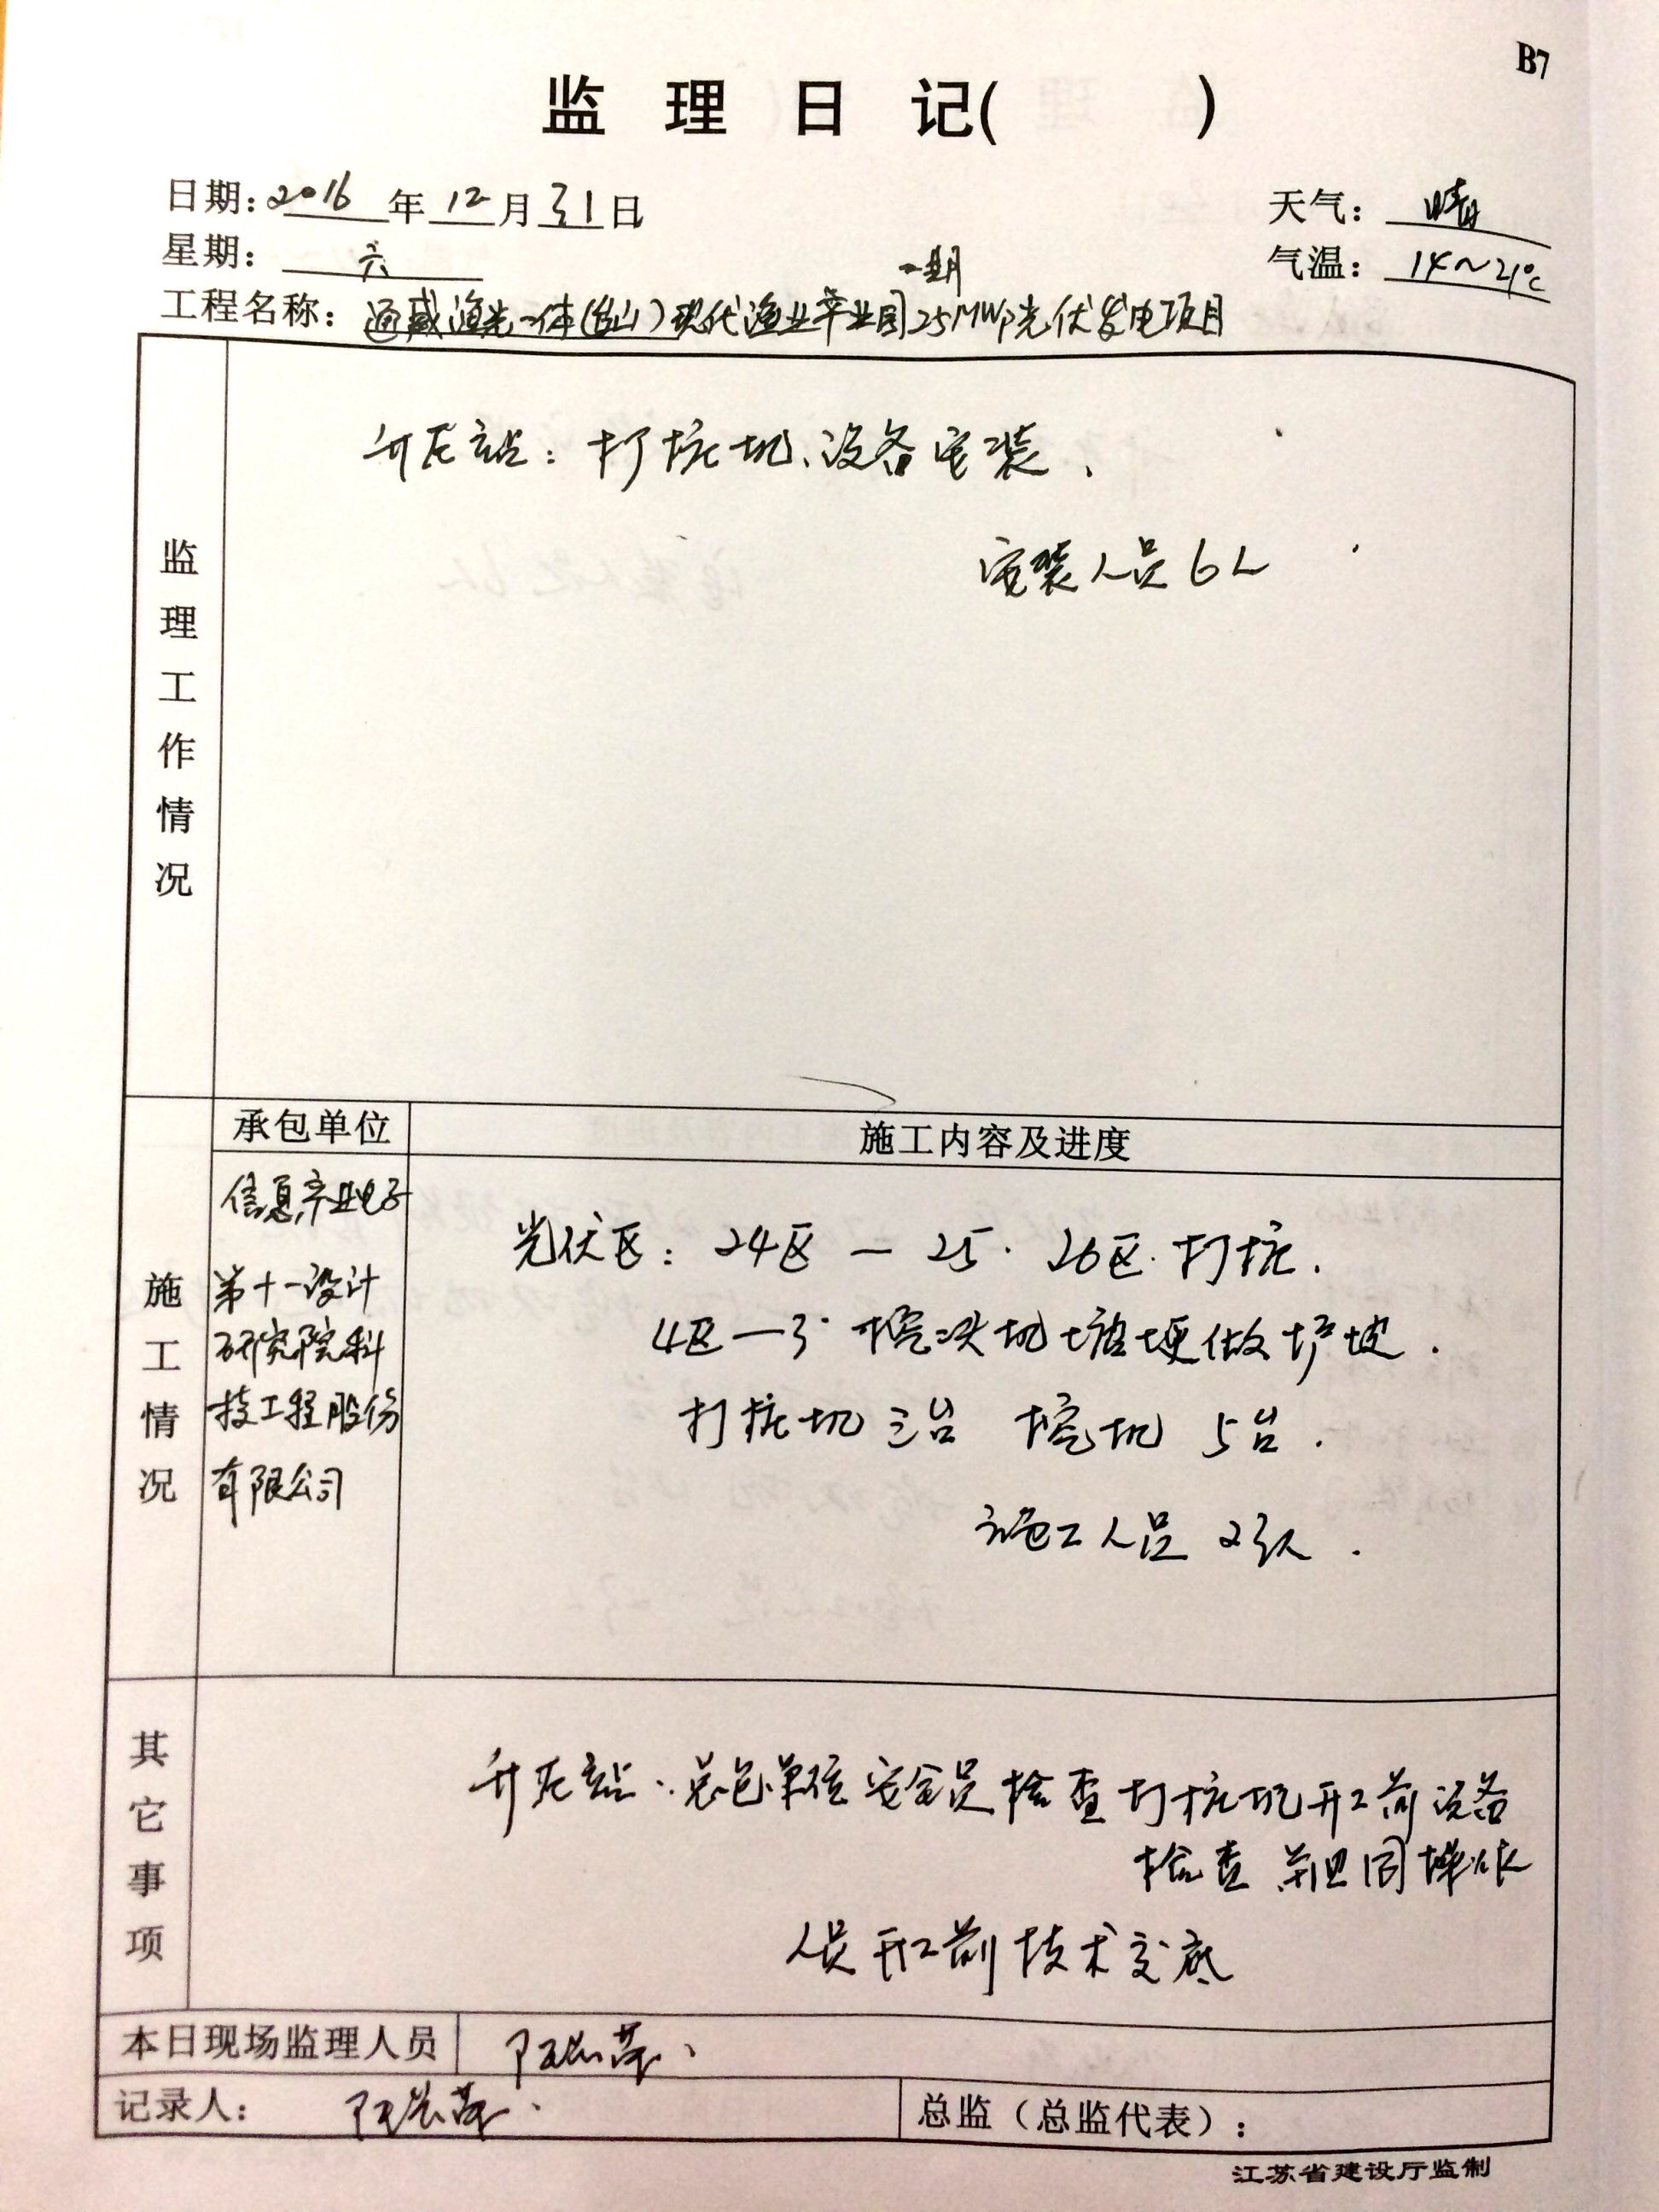 B7
监理日记( )
日期:2016年12月31日 天气:晴
星期:六 气温:14~21℃
一期
工程名称:通威渔光一体(台山)现代渔业产业园25MWp光伏发电项目
监理工作情况
升压站:打桩机、设备安装、
安装人员6人
施工情况
承包单位 施工内容及进度
信息产业电子
第十一设计
研究院科
技工程股份
有限公司
光伏区:24区—25·26区·打桩.
4区—3 挖机塘埂做护坡.
打桩机三台 挖机 5台.
施工人员 23人.
其它事项
升压站:总包单位安全员检查打桩机开工前设备
检查 并且同
人员开工前技术交底
本日现场监理人员
记录人: 总监(总监代表):
江苏省建设厅监制